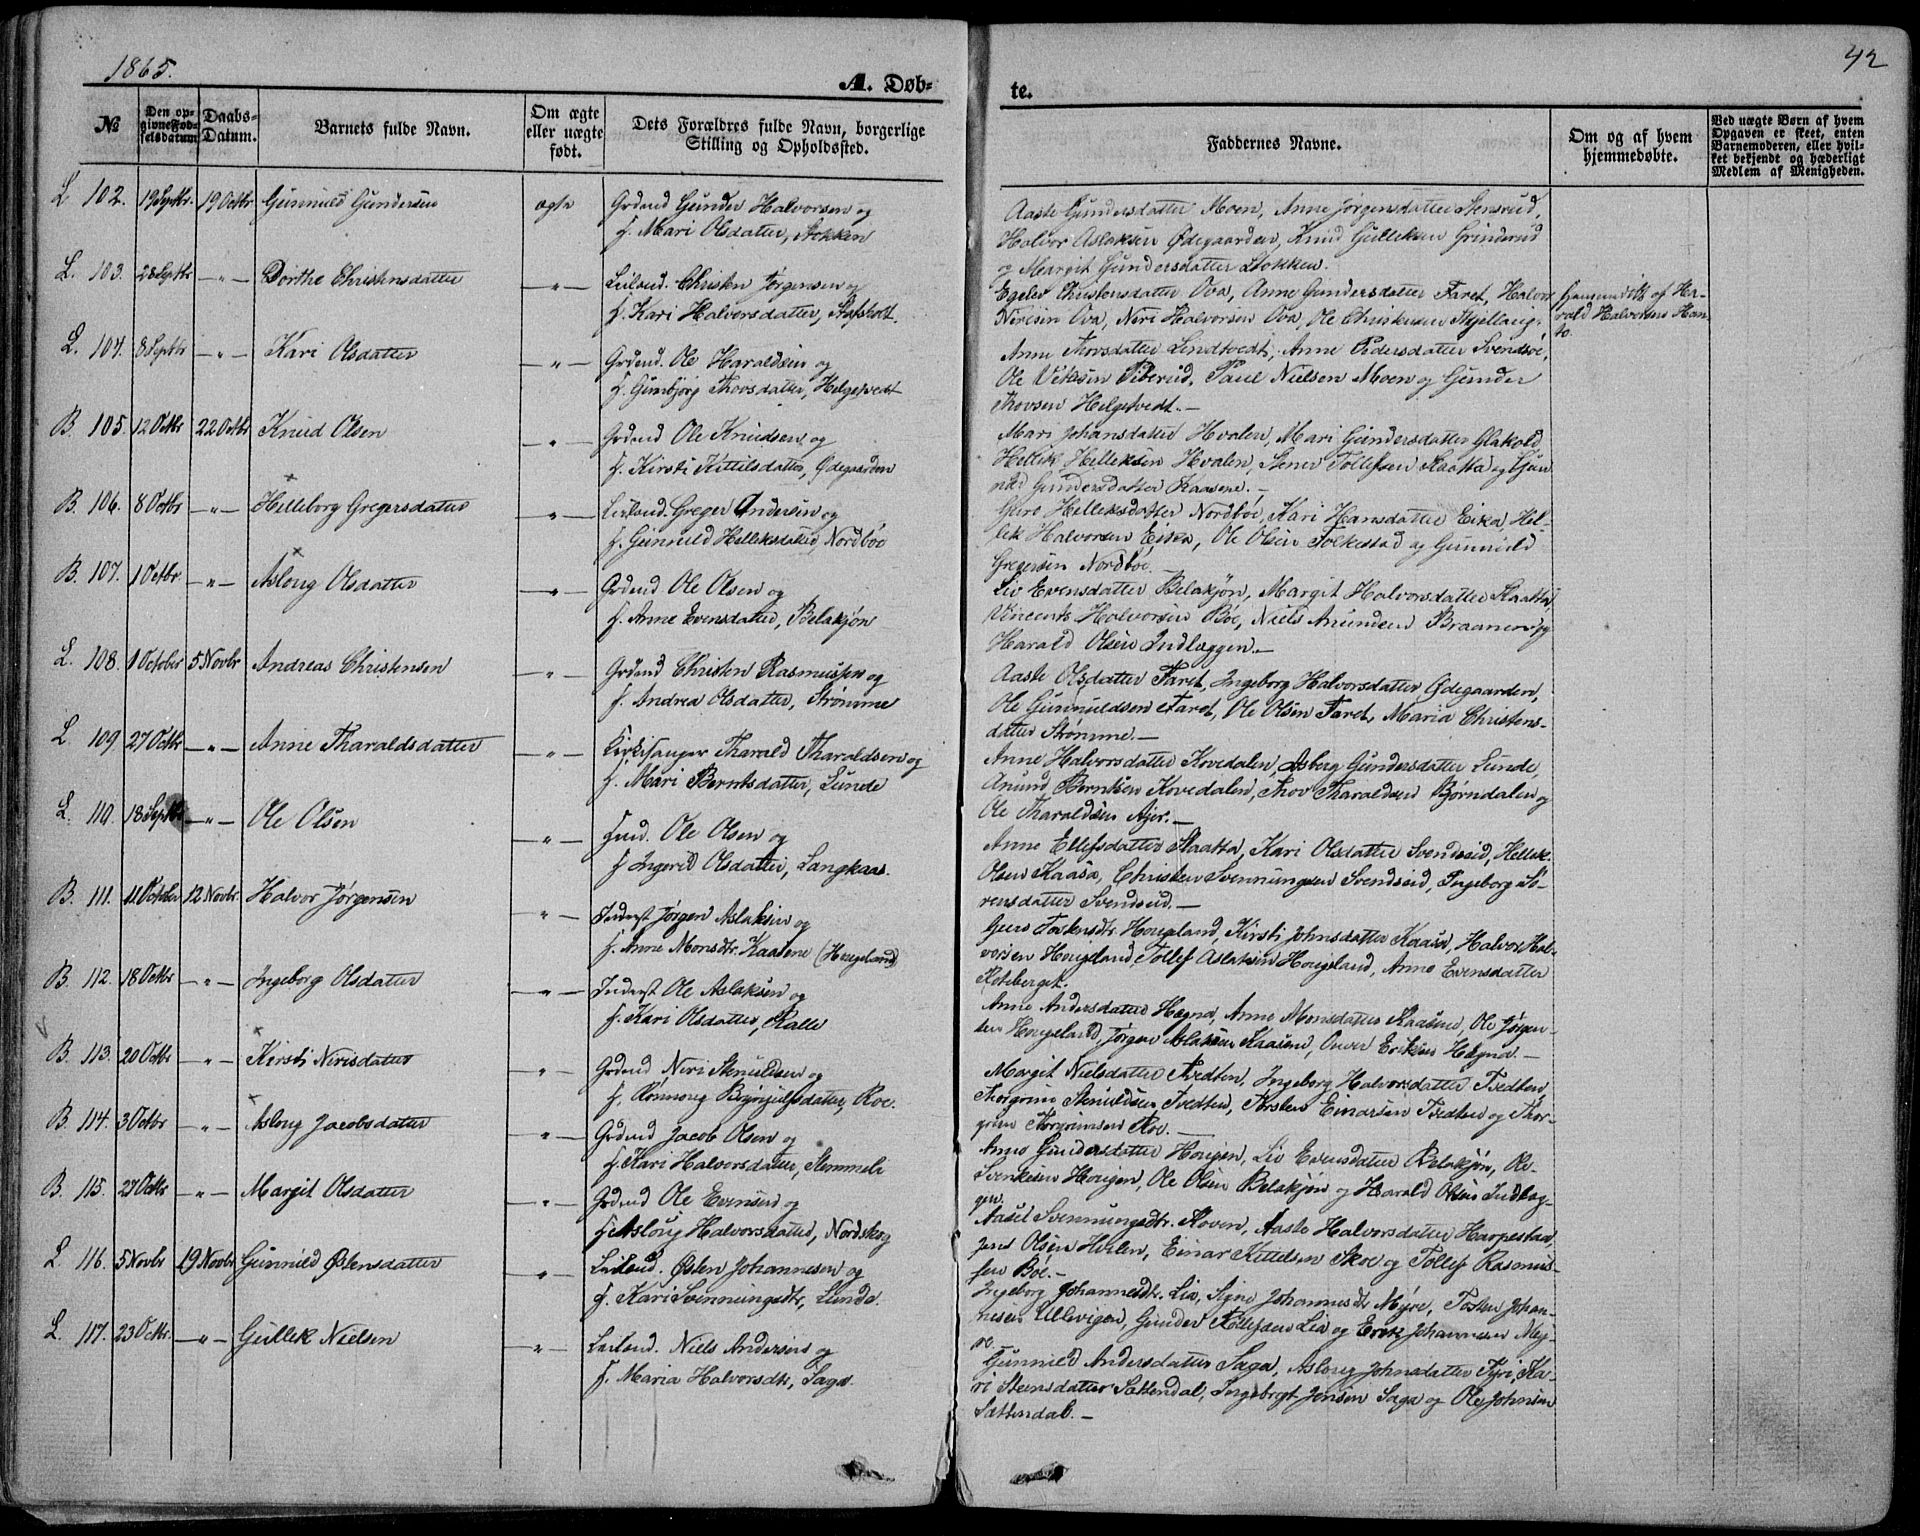 1865.
42
A. Døb-
te.
№
Den op-
givne Fød-
selsdatum
Daabs-
Datum.
Barnets fulde Navn.
Om ægte
eller uægte
født.
Dets Forældres fulde Navn, borgerlige
Stilling og Opholdssted.
Faddernes Navne.
Om og af hvem
hjemmedøbte.
Ved uægte Børn af hvem
Opgaven er skeet, enten
Barnemoderen, eller hvil-
ket bekjendt og hæderligt
Medlem af Menigheden.
L. 102. 19 Septbr. 19 Octbr. Gunnuld Gundersen ægte Grdmd Gunder Halvorsen og
f. Mari Olsdatter, Stokken
Aaste Gundersdatter Moen, Anne Jørgensdatter Stensrud,
Halvor Aslaksen Ødegaarden, Knud Gulleksen Grinderud
og Margit Gundersdatter Stokken.
L. 103. 28 Septbr —"— Dorthe Christensdatter —"— Leiland. Christen Jørgensen og
f. Kari Halvorsdatter,
Egelev Christensdatter Ova, Anne Gundersdatter Faret, Halvor
Nirisen Ova, Neri Halvorsen Ova, Ole Christensen
Hjemmedøbt af Ha-
rald Halvorsen Han-
to.
L. 104. 8 Septbr —"— Kari Olsdatter —"— Grdmd. Ole Haraldsen og
f. Gunbjørg Thovsdatter, Helgetvedt
Anne Thovsdatter Lindtvedt, Anne Pedersdatter Svendbøe,
Ole Tiberud, Paul Nielsen Moen og Gunder
Thovsen Helgetvedt.—
B. 105. 12 Octbr 22 Octbr Knud Olsen —"— Grdmd Ole Knudsen og
f. Kirsti Kittilsdatter, Ødegaarden
Mari Johansdatter Hvalen, Mari Gundersdatter
Hellek Helleksen Hvalen, Stener Tollefsen Slaatta og Gun
nild Gundersdatter Kaasene.—
B. 106. 8 Octbr —"— Helleborg Gregersdatter —"— Leiland. Greger Andersen og
f. Gunnuld Helleksdatter, Nordbøe
Guro Helleksdatter Nordbøe, Kari Hansdatter Eika, Hel-
lek Halvorsen Eika, Ole Olsen Folkestad og Gunnuld
Gregersen Nordbøe.
B. 107. 1 Octbr. —"— Asloug Olsdatter —"— Grdmd Ole Olsen og
f. Anne Evensdatter, Belakjøn
Liv Evensdatter Belakjøn, Margit Halvorsdatter Slaatta,
Vincents Halvorsen Bøe, Niels Anundsen Braanen og
Harald Olsen Indlæggen.—
L. 108. 1 October 5 Novbr Andreas Christensen —"— Grdmd Christen Rasmussen og
f. Andrea Olsdatter, Strømme
Aaste Olsdatter Faret, Ingeborg Halvorsdatter Ødegaarden,
Ole Gunnuldsen Faret, Ole Olsen Faret, Maria Christens-
datter Strømme.—
L. 109 27 Octbr —"— Anne Tharaldsdatter —"— Kirkesanger Tharald Tharaldsen og
f. Mari Berntsdatter, Lunde
Anne Halvorsdatter Kovedalen, Asberg Gundersdatter Lunde,
Anund Berntsen Kovedalen, Thov Tharaldsen Børndalen og
Ole Tharaldsen Ajer.—
L. 110. 18 Septbr —"— Ole Olsen —"— Ole Olsen og
f Ingerid Olsdatter, Langkaas.
Anne Ellefsdatter Slaatta, Kari Olsdatter Svendseid, Hellek
Olsen Kaasa, Christen Svennungsen Svendseid, Ingeborg Sø-
rensdatter Svendseid.—
B. 111. 11 October 12 Novbr. Halvor Jørgensen —"— Inderst Jørgen Aslaksen og
f. Anne Monsdtr. Kaasene (Hougeland)
Guro Hougeland, Kirsti Johnsdatter Kaasa, Halvor Hal-
vorsen Hougeland, Tollef Aslaksen Hougeland, Anne Evensdatter
Roteberget.
B. 112. 18 Octbr —"— Ingeborg Olsdatter —"— Inderst Ole Aslaksen og
f. Kari Olsdatter,
Anne Andersdatter Hægna, Anne Monsdatter Kaasene, Ole Jørgen-
sen Hougeland, Jørgen Aslaksen Kaasene, Eriksen Hægna.—
B. 113. 20 Octbr —"— Kirsti Nirisdatter —"— Grdmd Neri Stenulsen og
f. Rønnoug Brynjulfsdatter, Roe.
Margit Nielsdatter Tvedten, Ingeborg Halvorsdatter Tvedten,
Thorgrim Stenuldsen Tvedten, Torsten Einarsen Tvedten og Thor-
grim Thorgrimsen Roe.—
B. 114. 3 Octbr —"— Asloug Jacobsdatter —"— Grdmd Jacob Olsen og
f. Kari Halvorsdatter,
Anne Gundersdatter Hougen, Liv Evensdatter Belakjøn, Ole
Svenkesen Hougen, Ole Olsen Belakjøn og Harald Olsen Indlæg-
gen.
B. 115. 27 Octbr —"— Margit Olsdatter —"— Grdmd Ole Evensen og
f. Asloug Halvorsdatter, Nordskog
Aasel Svennungsdtr. Aaste Halvorsdatter Harpestad,
Jens Olsen Hvilen, Einar Kittelsen Skoe og Tollef Rasmus-
sen Bøe.—
L. 116. 5 Novbr 19 Novbr Gunnild Østensdatter —"— Leiland. Østen Johannesen og
f. Kari Svennungsdtr, Lunde.
Ingeborg Johannesdtr. Lia, Signe Johannesdtr Myre, Tosten Johan-
nesen Ullevigen, Gunder Tollefsen Lia og Erik Johannesen My-
re.
L. 117. 23 Octbr. —"— Gullek Nielsen —"— Leiland. Niels Andersen og
f. Maria Halvorsdtr, Saga.
Gunnild Andersdatter Saga, Asloug Johnsdatter Fyri, Ka-
ri Stensdatter Sattendal, Ingebregt Jensen Saga og Ole Johnsen
Sattendal.—